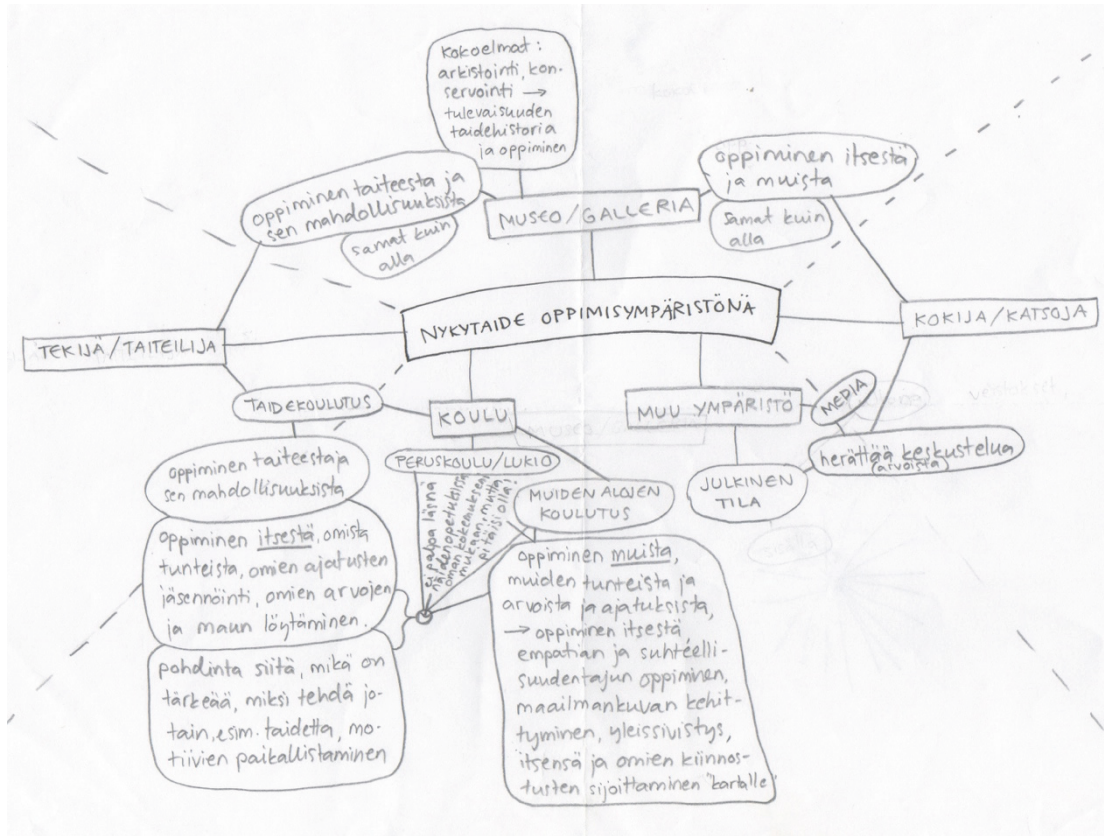 Kokoelmat:
arkistointi, kon-
servointi →
tulevaisuuden
taidehistoria
ja oppiminen
oppiminen taiteesta ja
sen mahdollisuuksista
samat kuin
alla
MUSEO/GALLERIA
oppiminen itsestä
ja muista
samat kuin
alla
NYKYTAIDE OPPIMISYMPÄRISTÖNÄ
TEKIJÄ/TAITEILIJA
KOKIJA/KATSOJA
TAIDEKOULUTUS
KOULU
MUU YMPÄRISTÖ
MEDIA
herättää keskustelua
arvoista
JULKINEN
TILA
PERUSKOULU/LUKIO
MUIDEN ALOJEN
KOULUTUS
ei paljoa läsnä
näiden opetuksissa
oman kokemuksen
mukaan, mutta
pitäisi olla!
oppiminen taiteesta ja
sen mahdollisuuksista
oppiminen itsestä, omista
tunteista, omien ajatusten
jäsennöinti, omien arvojen
ja maun löytäminen.
pohdinta siitä, mikä on
tärkeää, miksi tehdä jo-
tain, esim. taidetta, mo-
tiivien paikallistaminen
oppiminen muista,
muiden tunteista ja
arvoista ja ajatuksista,
→ oppiminen itsestä,
empatian ja suhteelli-
suudentajun oppiminen,
maailmankuvan kehit-
tyminen, yleissivistys,
itsensä ja omien kiinnos-
tusten sijoittaminen "kartalle"